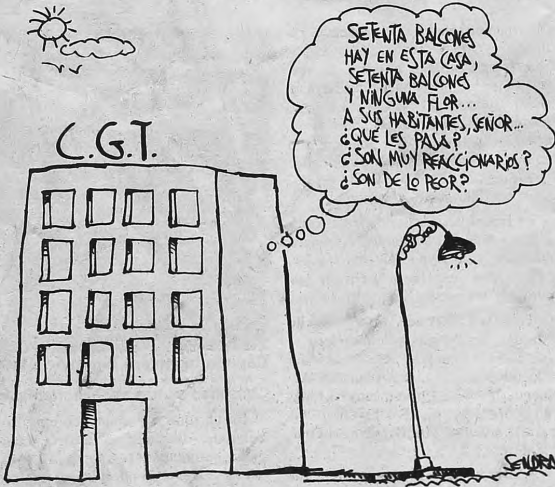 SETENTA BALCONES
HAY EN ESTA CASA,
SETENTA BALCONES
Y NINGUNA FLOR...
A SUS HABITANTES, SEÑOR...
¿QUÉ LES PASA?
¿SON MUY REACCIONARIOS?
¿SON DE LO PEOR?
C.G.T.
SENDRA